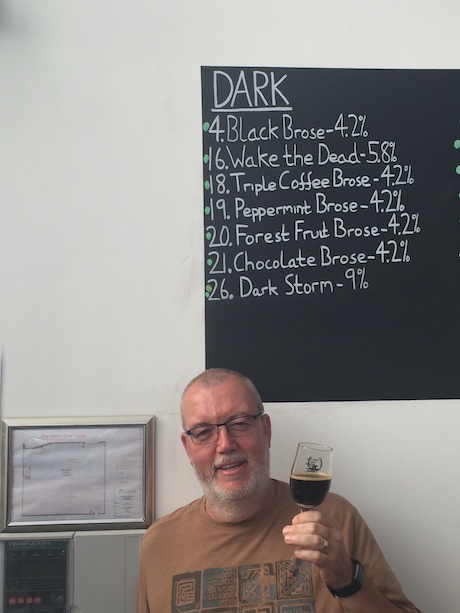 DARK
4. Black Brose-4.2%
16. Wake the Dead-5.8%
18. Triple Coffee Brose-4.2%
19. Peppermint Brose-4.2%
20. Forest Fruit Brose-4.2%
21. Chocolate Brose-4.2%
26. Dark Storm-9%